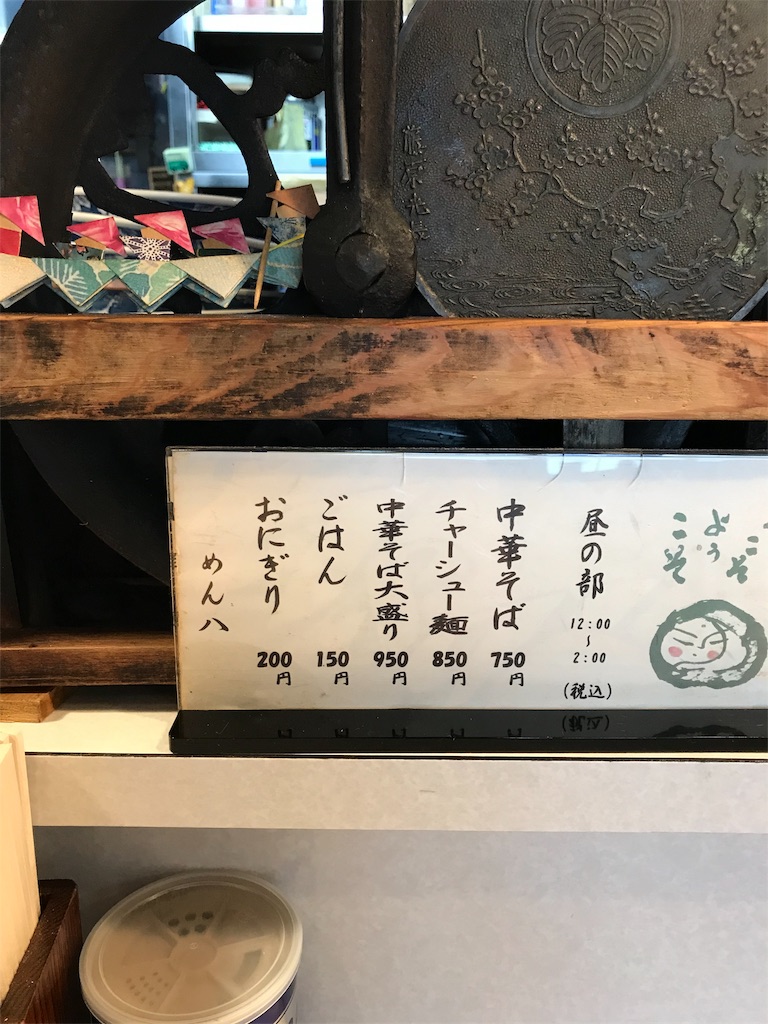 藤原光
こそ
よう
こそ
昼の部
12:00
～
2:00
(税込)
中華そば 750円
チャーシュー麺 850円
中華そば大盛り 950円
ごはん 150円
おにぎり 200円
めん八